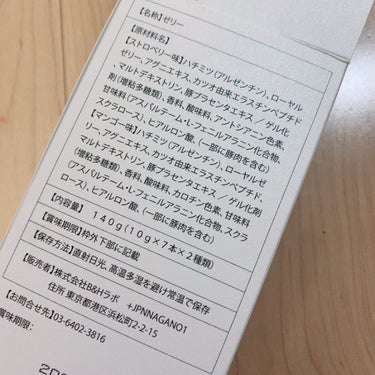 【名称】ゼリー
【原材料名】
【ストロベリー味】ハチミツ(アルゼンチン)、ローヤル
ゼリー、アグニエキス、カツオ由来エラスチンペプチド
、マルトデキストリン、豚プラセンタエキス / ゲル化
剤(増粘多糖類)、香料、酸味料、アントシアニン色素、
甘味料(アスパルテーム・L-フェニルアラニン化合物、
スクラロース)、ヒアルロン酸、(一部に豚肉を含む)
【マンゴー味】ハチミツ(アルゼンチン)、ローヤルゼ
リー、アグニエキス、カツオ由来エラスチンペプチド、
マルトデキストリン、豚プラセンタエキス / ゲル化剤
(増粘多糖類)、香料、酸味料、カロチン色素、甘味料
(アスパルテーム・L-フェニルアラニン化合物、スクラ
ロース)、ヒアルロン酸、(一部に豚肉を含む)
【内容量】 140g(10g×7本×2種類)
【賞味期限】枠外下部に記載
【保存方法】直射日光、高温多湿を避け常温で保存
【販売者】株式会社B&Hラボ +JPNNAGANO1
住所 東京都港区浜松町2-2-15
【お問合せ先】03-6402-3816
賞味期限: